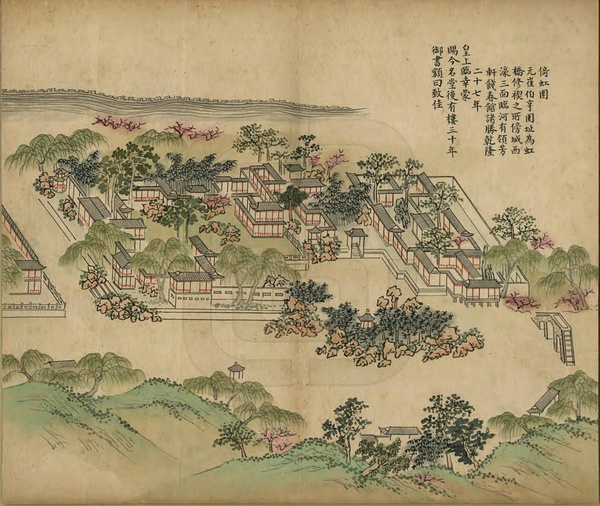 倚虹園
元崔伯亨園址為虹
橋修禊之所傍城西
濠三面臨河有領芳
軒餞春館諸勝乾隆
二十七年
皇上臨幸蒙
賜今名堂後有樓三十年
御書額曰致佳